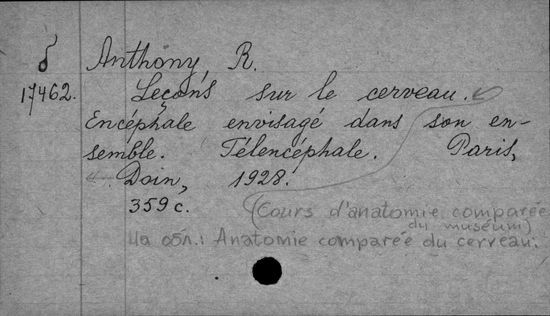 б
Anthony, R.
17462. Leçons sur le cerveau.
Encéphale envisagé dans son en-
semble. Télencéphale. Paris,
Doin, 1928.
359 с. (Cours d'anatomie comparée
du muséum)
На обл.: Anatomie comparée du cerveau.